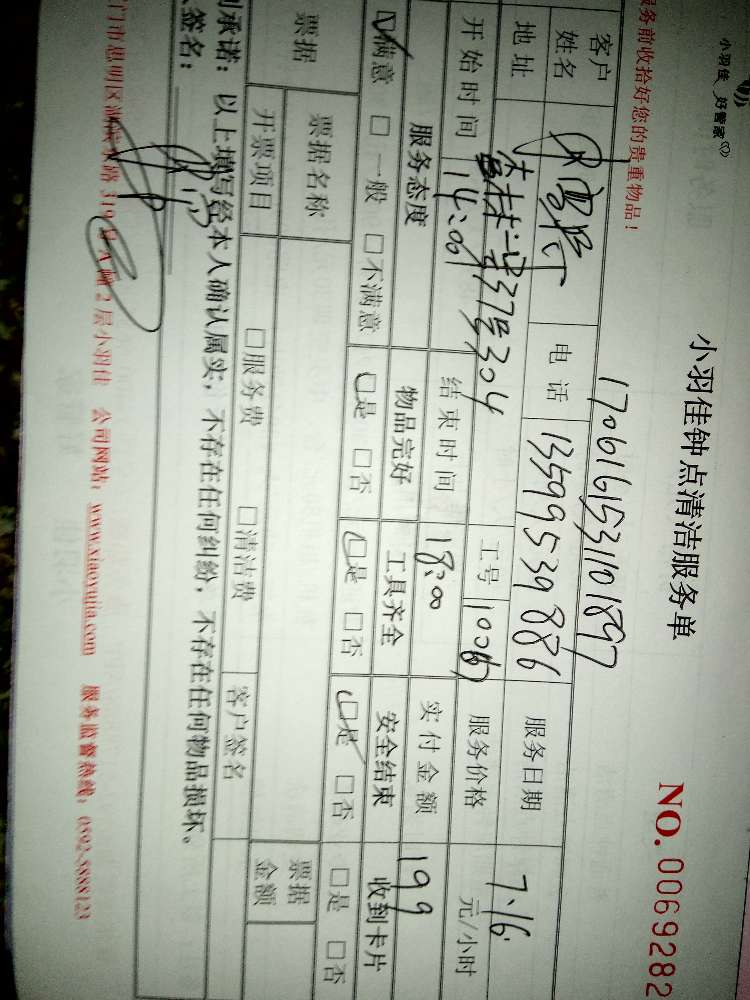 小羽佳 好管家
小羽佳钟点清洁服务单
NO. 0069282
服务前收拾好您的贵重物品！
客户
姓名
电话 13599539886
服务日期 7.16
地址 号37号304
工号
服务价格 元/小时
开始时间 14:00
结束时间 18:00
实付金额 199
服务态度 物品完好 工具齐全 安全结束 收到卡片
☑满意 □一般 □不满意 □是 □否 □是 □否 □是 □否 □是 □否
票据 票据名称 票据
金额
开票项目 □服务费 □清洁费 客户签名
承诺：以上填写经本人确认属实，不存在任何纠纷，不存在任何物品损坏。
签名：
门市思明区 2层小羽佳 公司网站：www.xiaoyujia.com 服务监督热线：0592-5888123